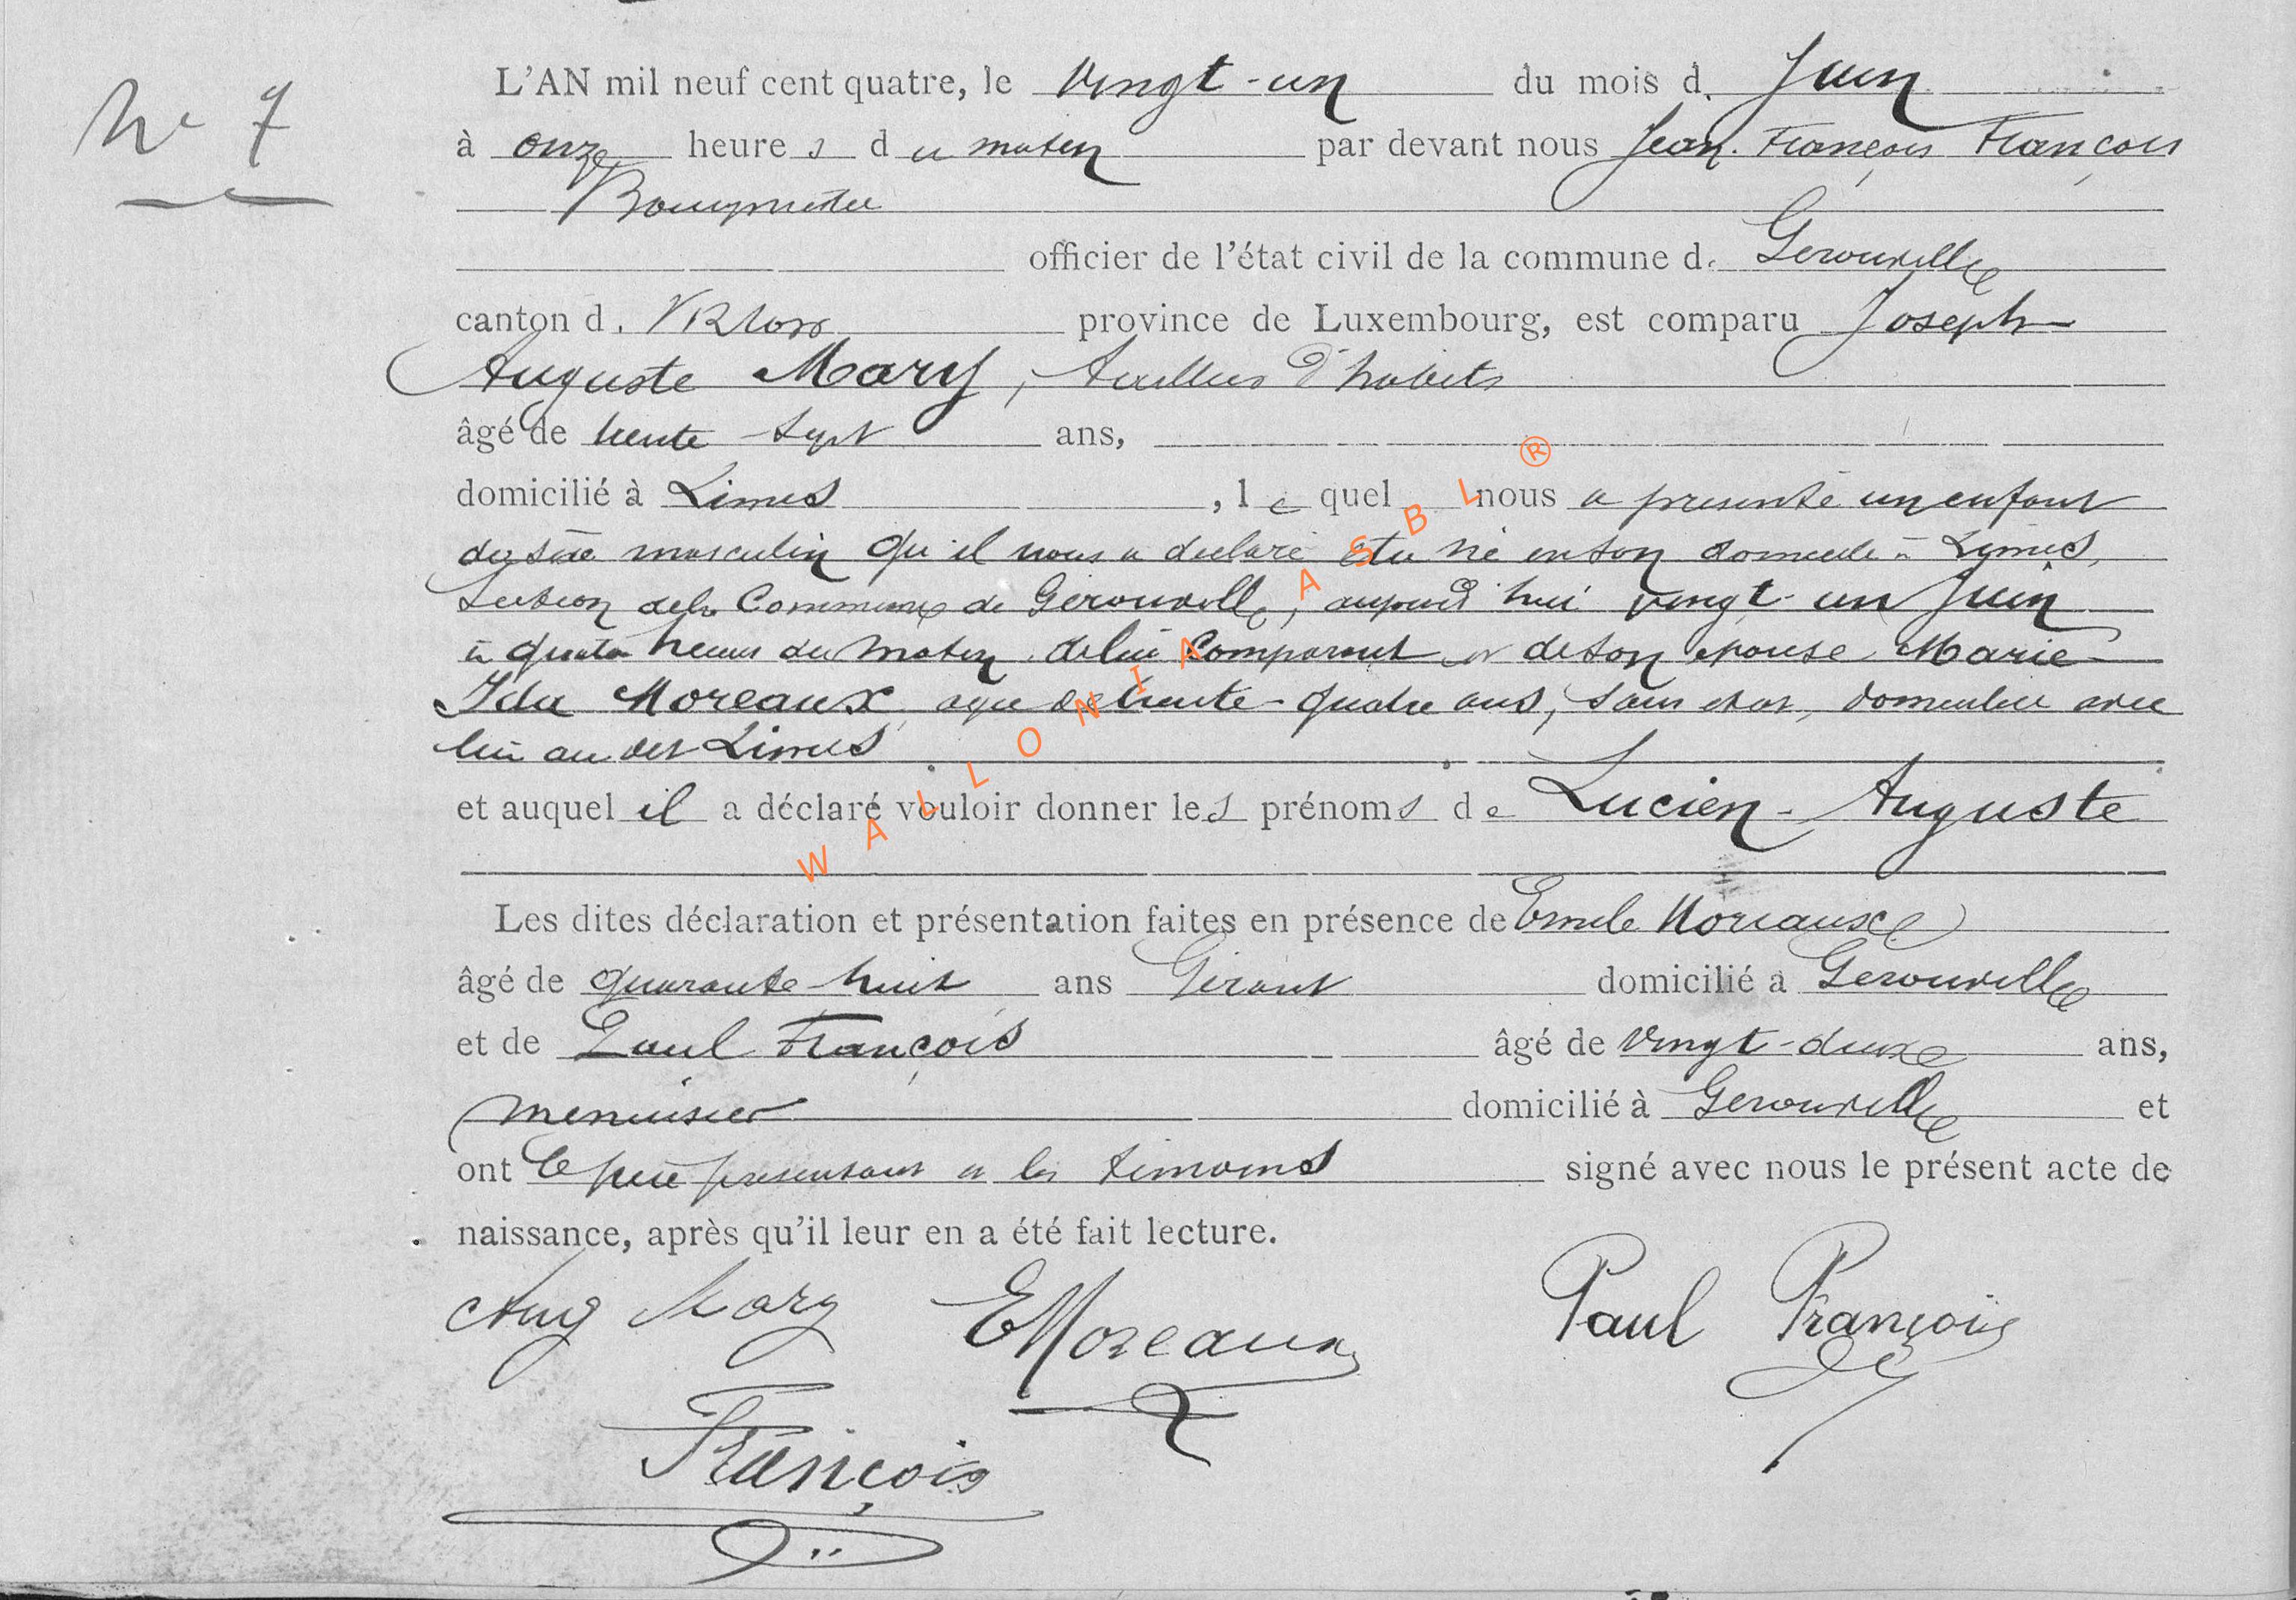 N° 7
L'AN mil neuf cent quatre, le vingt-un du mois d. Juin
à onze heures du matin par devant nous Jean-François François
Bourgmestre
officier de l'état civil de la commune d. Gerouville
canton d. Virton province de Luxembourg, est comparu Joseph
Auguste Mary, tailleur d'habits
âgé de trente sept ans,
domicilié à Limes, lequel nous a présenté un enfant
du sexe masculin qu'il nous a déclaré être né en son domicile à Limes,
section de la Commune de Gérouville, aujourd'hui vingt-un Juin
à quatre heures du matin de lui Comparant et de son épouse Marie
Ida Moreaux agée de trente-quatre ans, sans état, domiciliée avec
lui au dit Limes
et auquel il a déclaré vouloir donner les prénoms de Lucien-Auguste
Les dites déclaration et présentation faites en présence de Emile Moreaux
âgé de quarante-huit ans Gérant domicilié à Gerouville
et de Paul François âgé de vingt-deux ans,
menuisier domicilié à Gerouville et
ont le père présentant et les témoins signé avec nous le présent acte de
naissance, après qu'il leur en a été fait lecture.
Aug Mary EMoreaux Paul François
François
WALLONIA ASBL ®